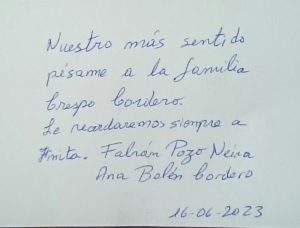 Nuestro más sentido
pésame a la familia
Crespo Cordero.
Le recordaremos siempre a
Anita. Fabián Pozo Neira
Ana Belén Cordero
16-06-2023